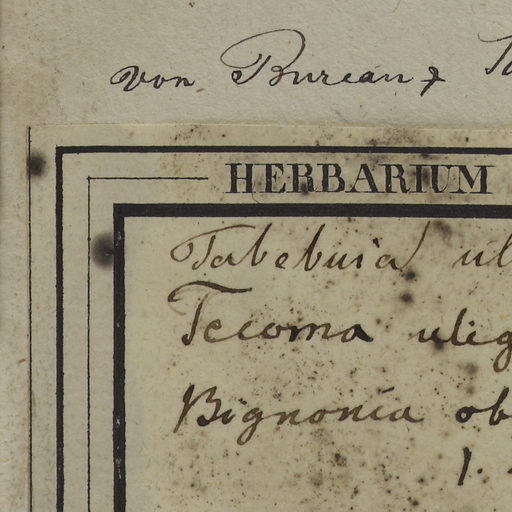 von Bureau &
HERBARIUM
Tabebuia ul
Tecoma ulig
Bignonia ob
1.